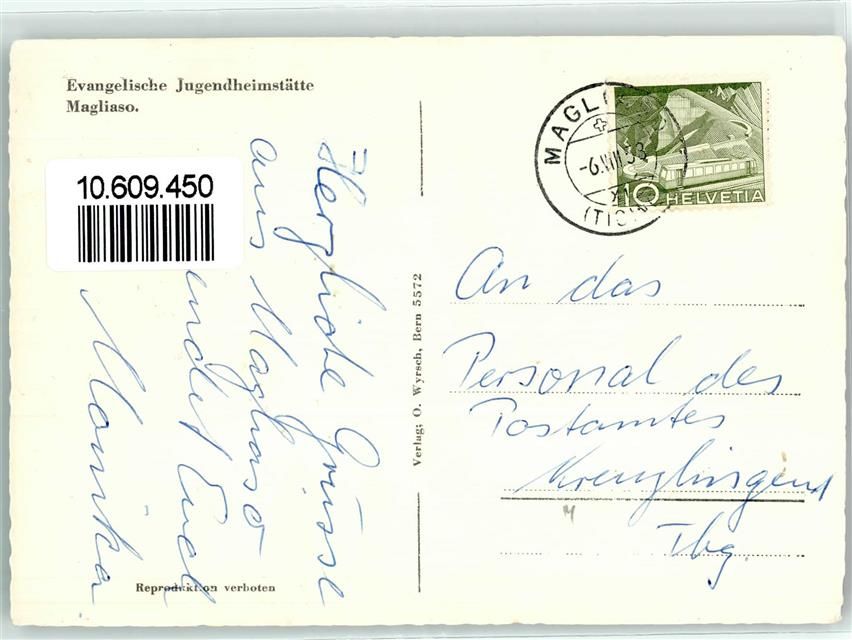 Evangelische Jugendheimstätte
Magliaso.
10.609.450
Herzliche Grüsse
aus Magliaso
sendet Euch
Monika
Reproduktion verboten
Verlag; O. Wyrsch, Bern 5572
MAGLI
-6.VIII.58
(TICINO)
10 HELVETIA
An das
Personal des
Postamtes
Kreuzlingen 1
Tbg.